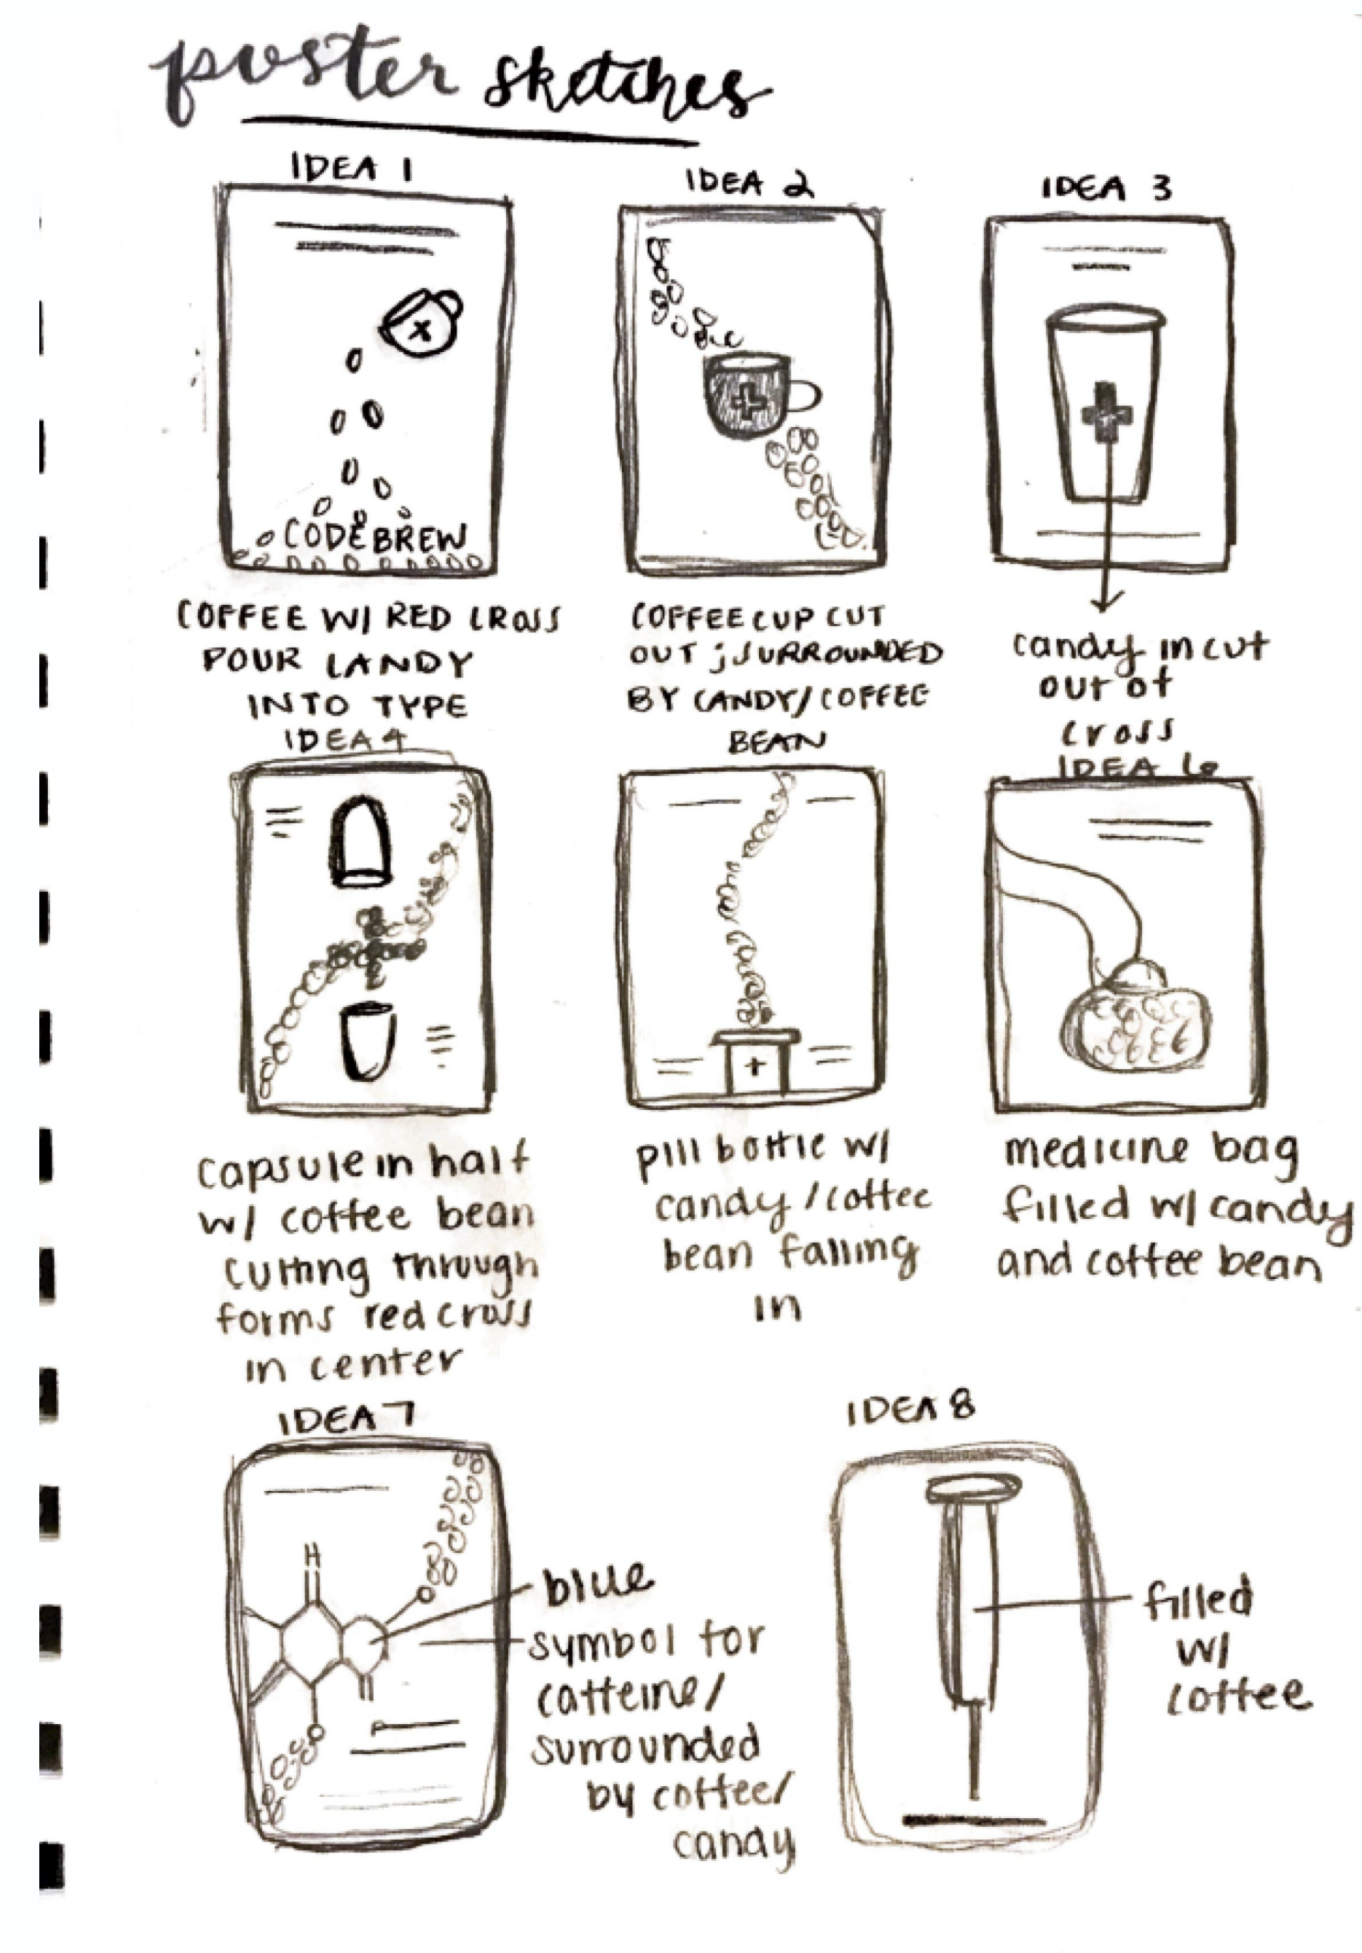 poster sketches
IDEA 1
CODEBREW
COFFEE W/ RED CROSS
POUR CANDY
INTO TYPE
IDEA 2
COFFEE CUP CUT
OUT ; SURROUNDED
BY CANDY/COFFEE
BEAN
IDEA 3
candy in cut
out of
cross
IDEA 4
capsule in half
w/ coffee bean
cutting through
forms red cross
in center
pill bottle w/
candy/coffee
bean falling
in
IDEA 6
medicine bag
filled w/ candy
and coffee bean
IDEA 7
H
blue
symbol for
caffeine/
surrounded
by coffee/
candy
IDEA 8
filled
w/
coffee